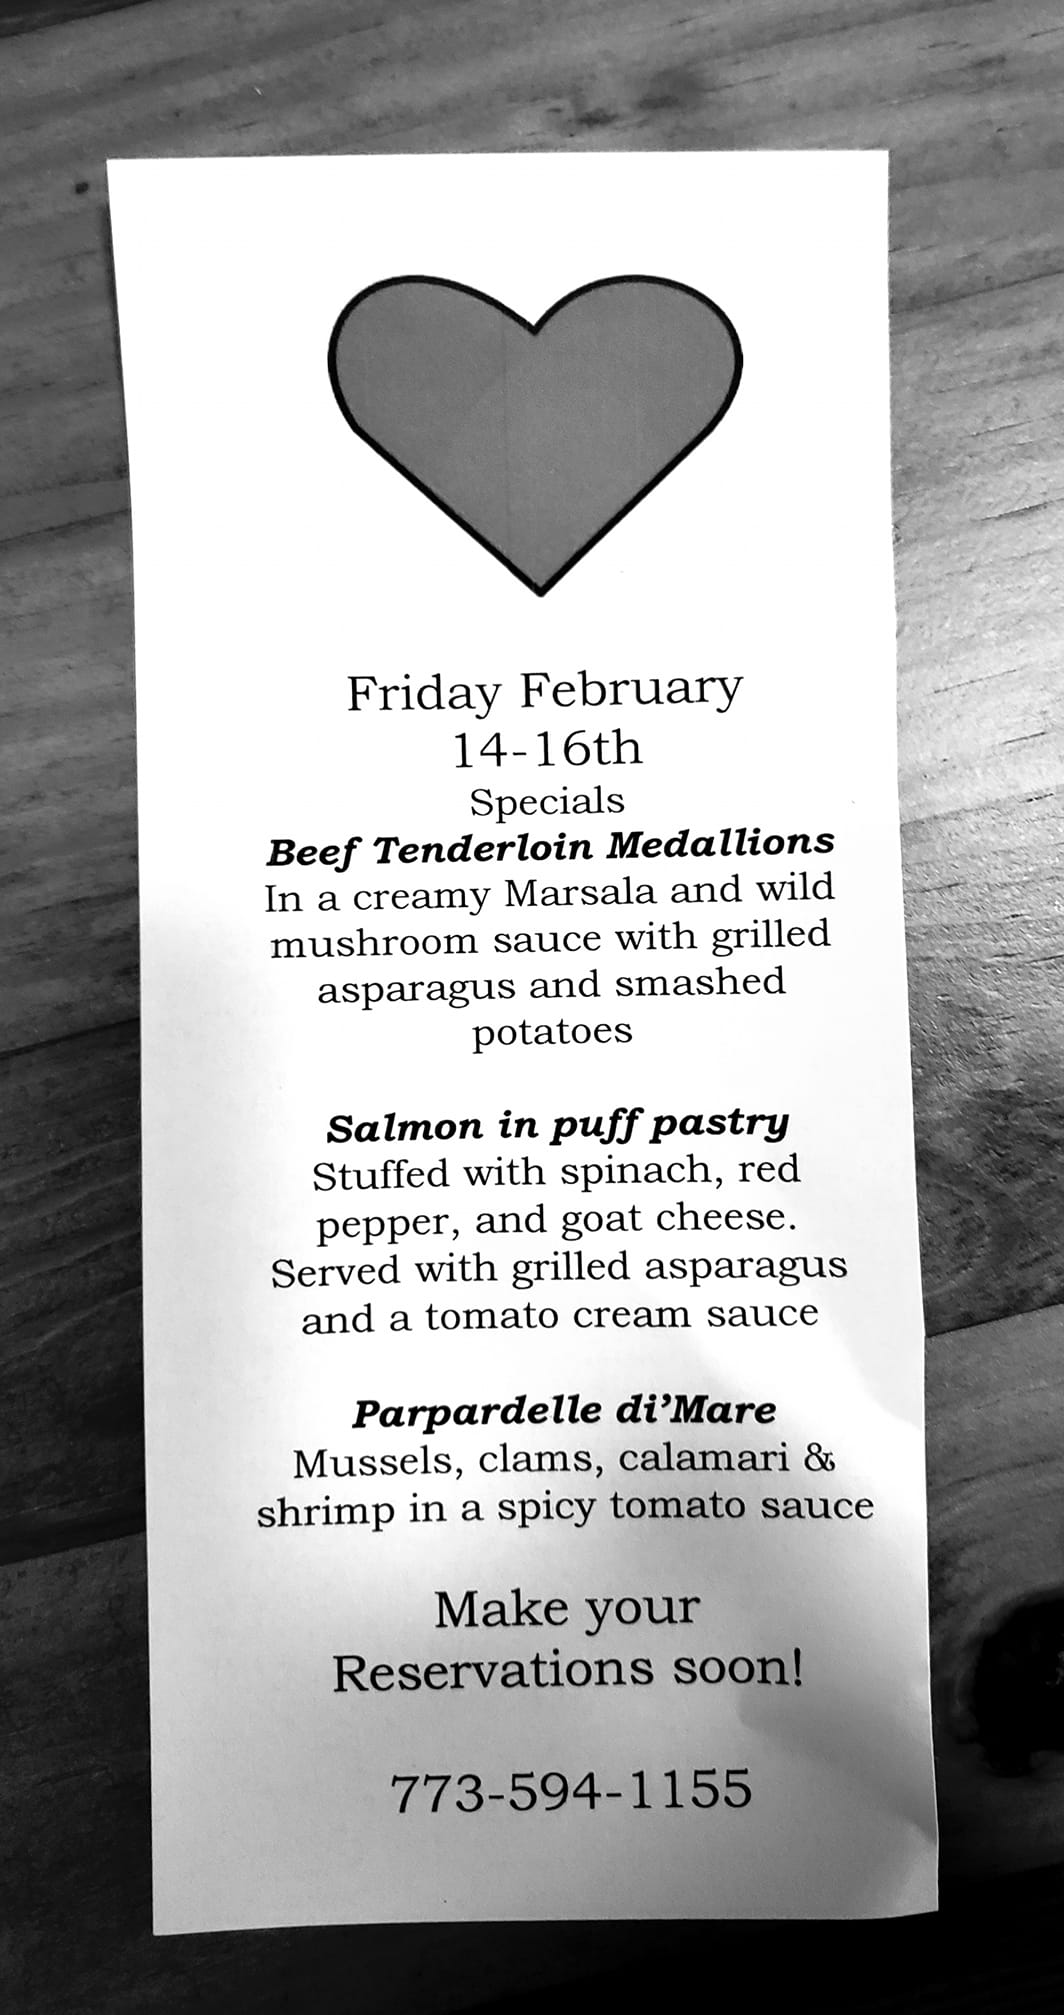 Friday February
14-16th
Specials
Beef Tenderloin Medallions
In a creamy Marsala and wild
mushroom sauce with grilled
asparagus and smashed
potatoes
Salmon in puff pastry
Stuffed with spinach, red
pepper, and goat cheese.
Served with grilled asparagus
and a tomato cream sauce
Parpardelle di’Mare
Mussels, clams, calamari &
shrimp in a spicy tomato sauce
Make your
Reservations soon!
773-594-1155